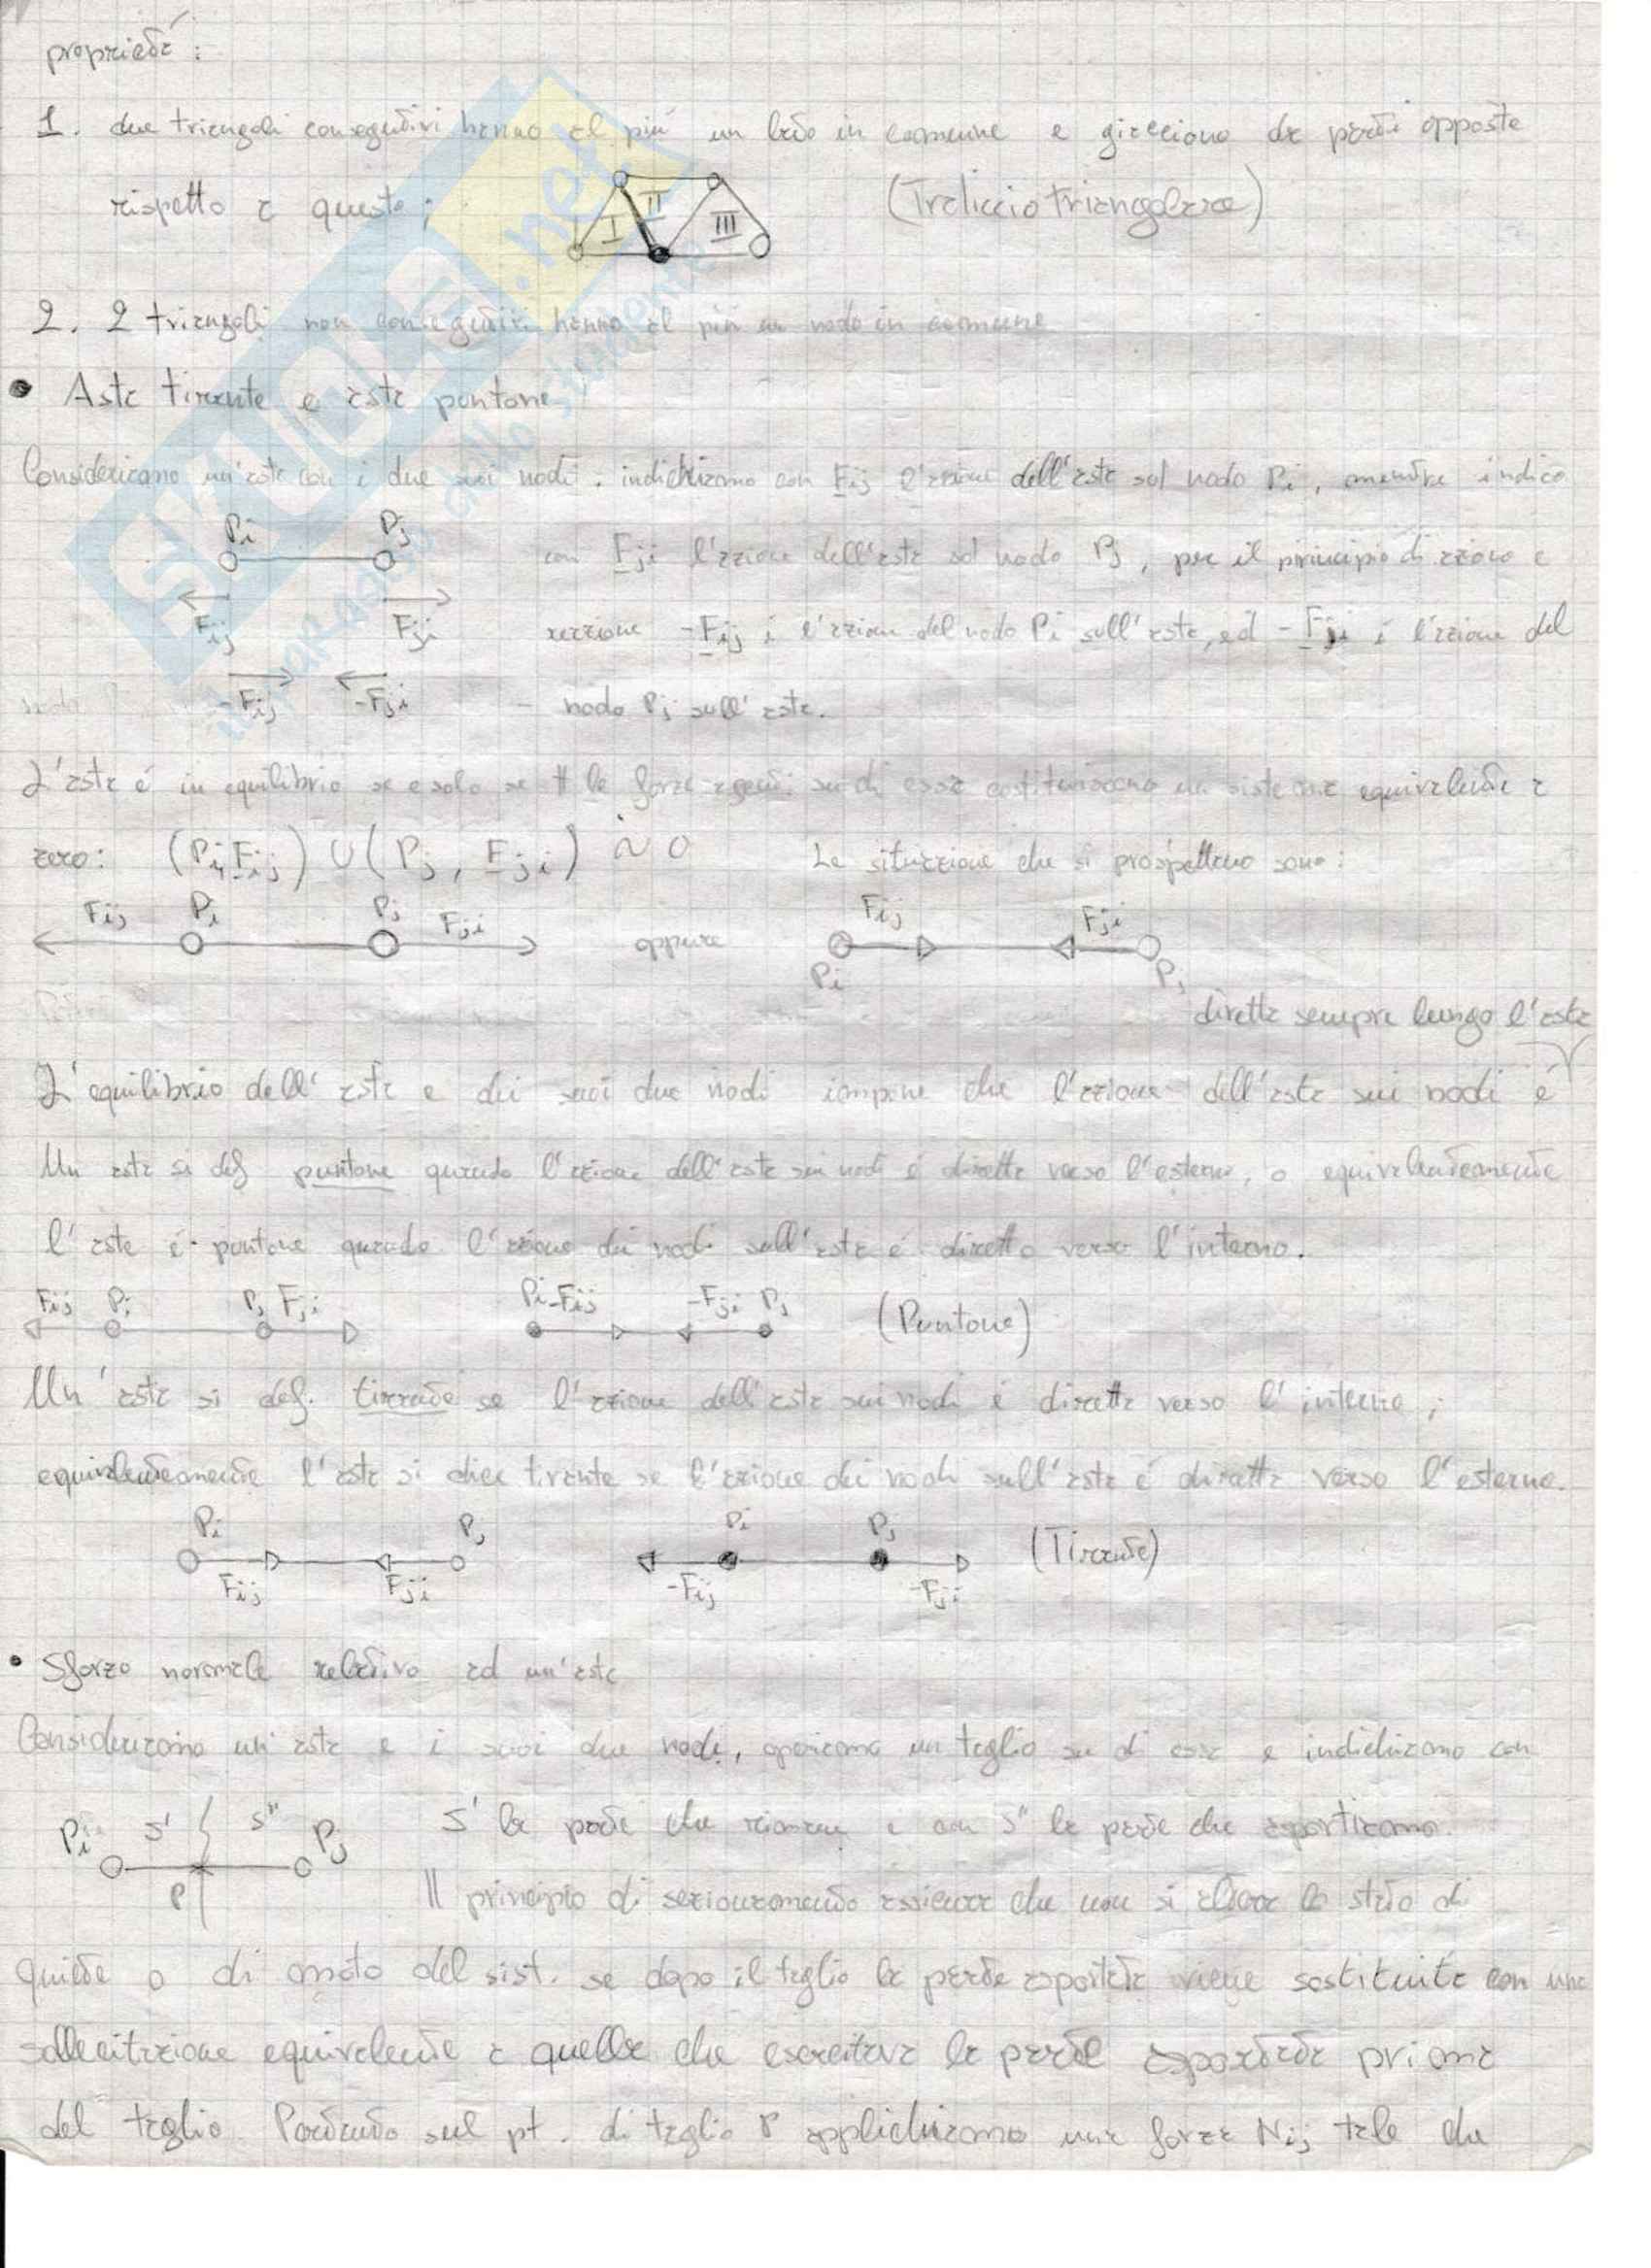 proprietà:
1. due triangoli consegutivi hanno al più un lato in comune e giacciono da parti opposte
rispetto a questo; I II III (Traliccio triangolare)
2. 2 triangoli non consegutivi hanno al più un nodo in comune
• Asta tirante e asta puntone
Consideriamo un'asta con i due suoi nodi. indichiamo con Fij l'azione dell'asta sul nodo Pi, mentre indico
Pi Pj con Fji l'azione dell'asta sul nodo Pj, per il principio di azione e
Fij Fji reazione -Fij è l'azione del nodo Pi sull'asta, ed -Fji è l'azione del
-Fij -Fji nodo Pj sull'asta.
L'asta é in equilibrio se e solo se le forze agenti su di essa costituiscono un sistema equivalente a
zero: (Pi, Fij) ∪ (Pj, Fji) ~ 0 Le situazione che si prospettano sono:
Fij Pi Pj Fji oppure Fij Fji Pi Pj
diretta sempre lungo l'asta
L'equilibrio dell'asta e dei suoi due nodi impone che l'azione dell'asta sui nodi é
Un asta si def puntone quando l'azione dell'asta sui nodi é diretta verso l'esterno, o equivalentemente
l'asta é puntone quando l'azione dei nodi sull'asta é diretta verso l'interno.
Fij Pi Pj Fji Pi -Fij -Fji Pj (Puntone)
Un'asta si def. tirante se l'azione dell'asta sui nodi é diretta verso l'interno;
equivalentemente l'asta si dice tirante se l'azione dei nodi sull'asta é diretta verso l'esterno.
Pi Pj Pi Pj (Tirante)
Fij Fji -Fij -Fji
• Sforzo normale relativo ad un'asta
Consideriamo un'asta e i suoi due nodi, operiamo un taglio su di essa e indichiamo con
Pi S' S" Pj S' la parte che rimane e con S" la parte che asportiamo.
P Il principio di sezionamento assicura che non si altera lo stato di
quiete o di moto del sist. se dopo il taglio la parte asportata viene sostituita con una
sollecitazione equivalente a quella che esercitava la parte asportata prima
del taglio. Pertanto sul pt. di taglio P applichiamo una forza Nij tale che
SKUOLA.net